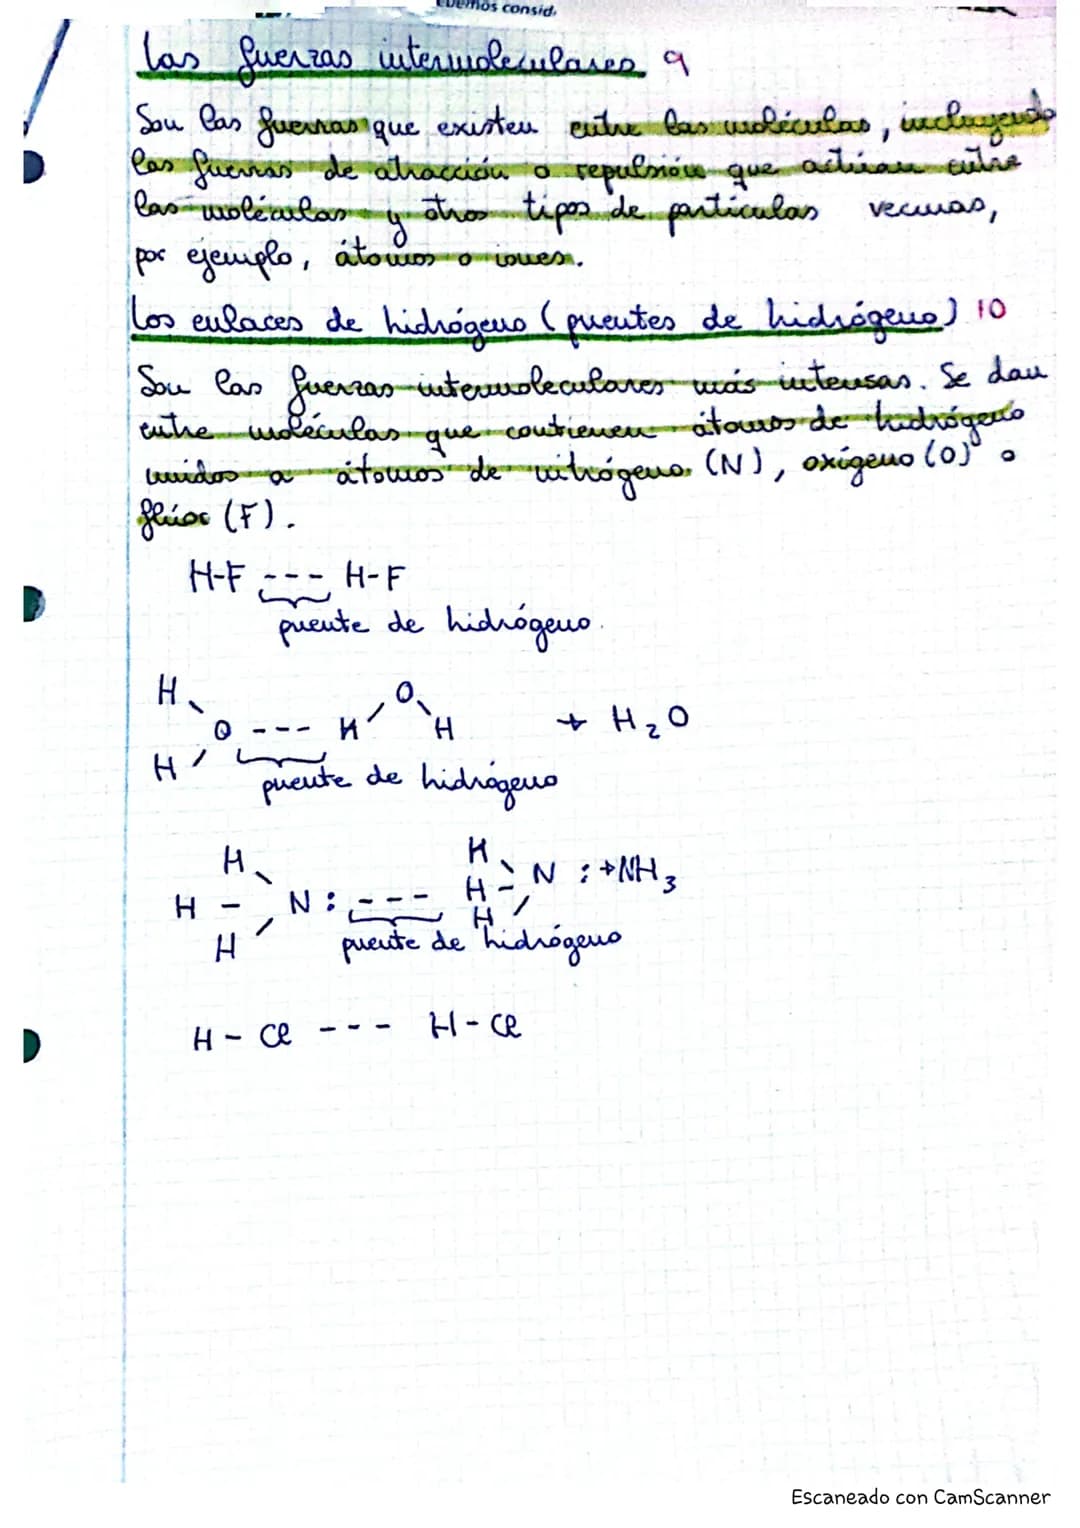 debemos consid.
Las fuerzas intermoleculares 9
Son las fuerzas que existen entre las moléculas, incluyendo
las fuerzas de atracción o repulsión que actúan entre
las moléculas y otros tipos de partículas vecinas,
por ejemplo, átomos o iones.
Los enlaces de hidrógeno (puentes de hidrógeno) 10
Son las fuerzas intermoleculares más intensas. Se dan
entre moléculas que contienen átomos de hidrógeno
unidos a átomos de nitrógeno (N), oxígeno (O) o
flúor (F).
H-F --- H-F
puente de hidrógeno.
H O
O --- H H + H2O
H
puente de hidrógeno
H H
H - N: --- H - N : + NH3
H H
puente de hidrógeno
H - Cl --- H - Cl
Escaneado con CamScanner